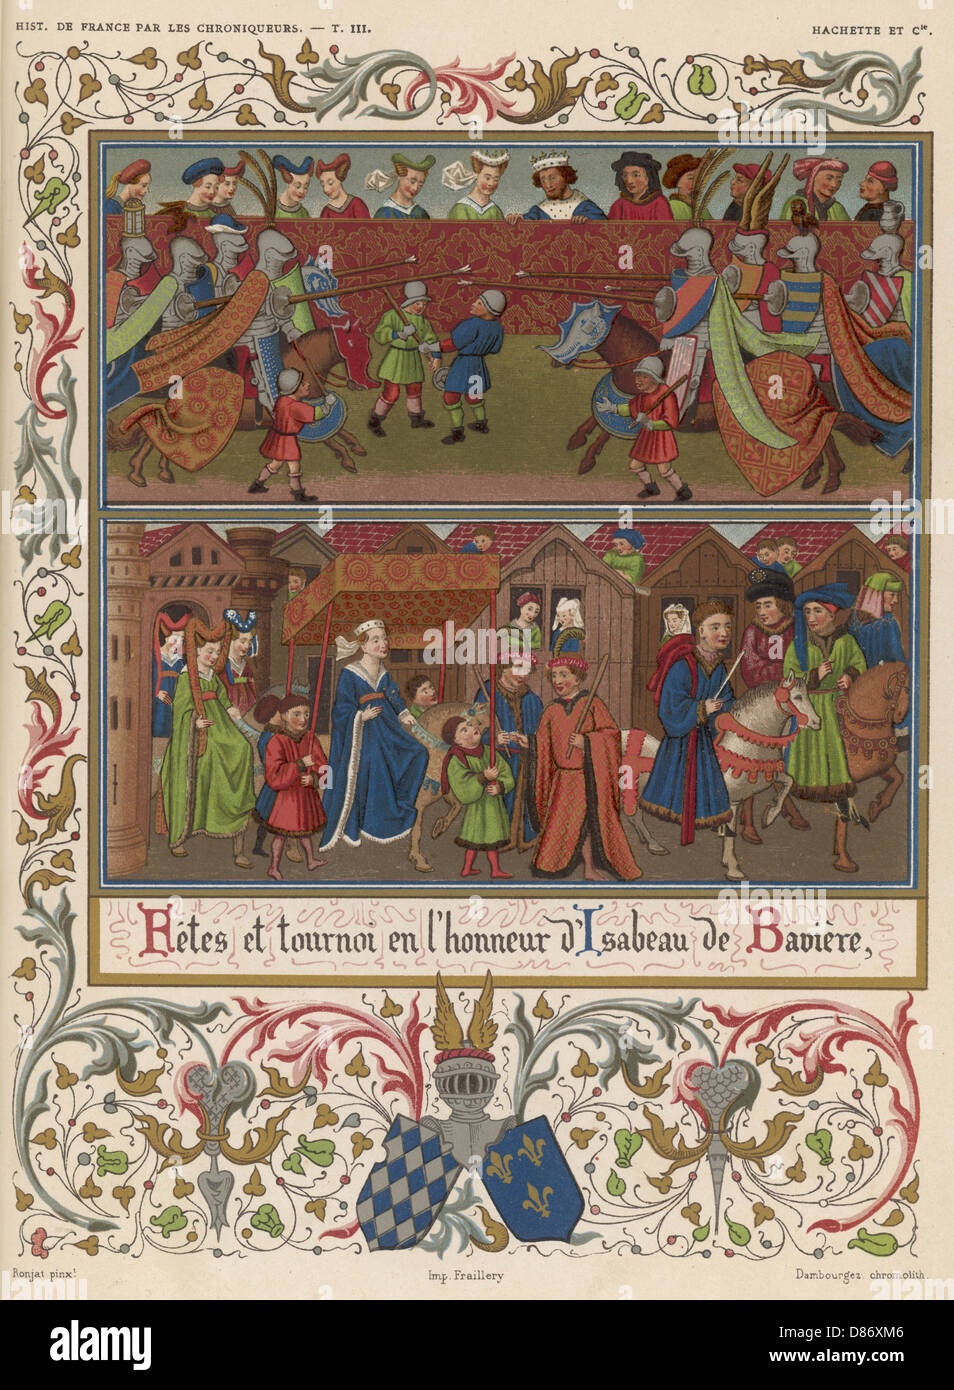 HIST. DE FRANCE PAR LES CHRONIQUEURS. — T. III.
HACHETTE ET Cie.
Fêtes et tournoi en l'honneur d'Isabeau de Bavière,
Ronjat pinxt
Imp. Fraillery
Dambourgez chromolith.
alamy
Image ID: D86XM6
www.alamy.com